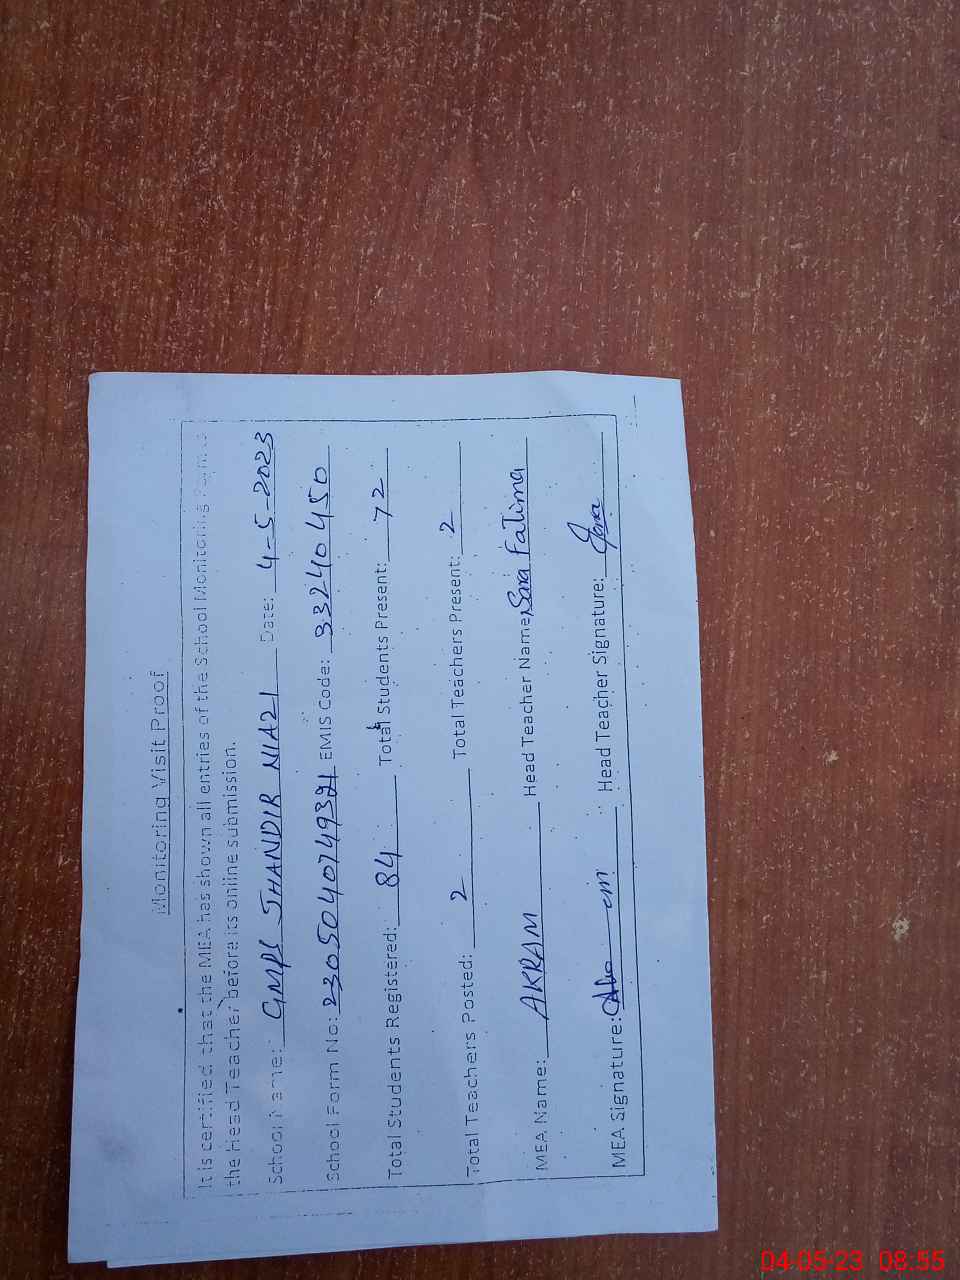 Monitoring Visit Proof
It is certified that the MEA has shown all entries of the School Monitoring Form to
the Head Teacher before its online submission.
School Name: GMPS JHANDIR NIAZI Date: 4-5-2023
School Form No: EMIS Code: 33240450
Total Students Registered: 84 Total Students Present: 72
Total Teachers Posted: 2 Total Teachers Present: 2
MEA Name: AKRAM Head Teacher Name: Sara Fatima
MEA Signature: Head Teacher Signature: Sara
04-05-23 08:55